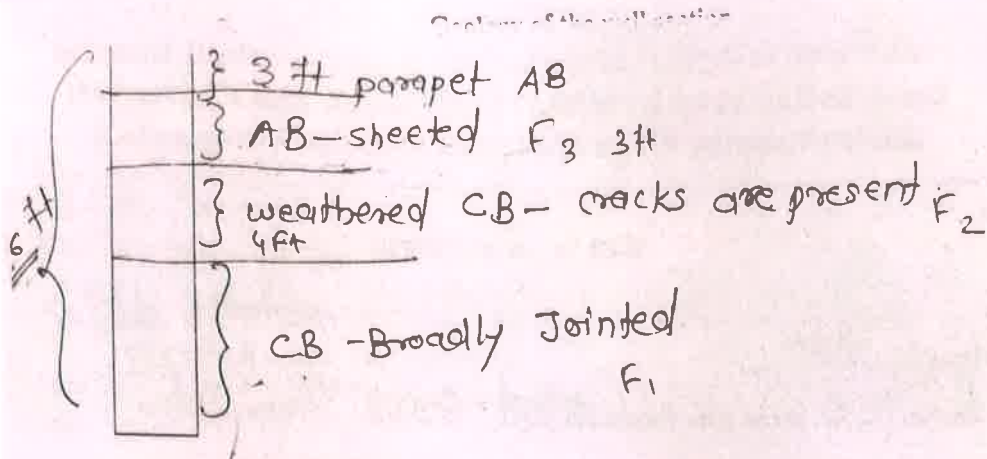 3 ft parapet AB
AB-sheeted F3 3ft
weathered CB- cracks are present F2
4Ft
6 ft
CB -Broadly Jointed
F1